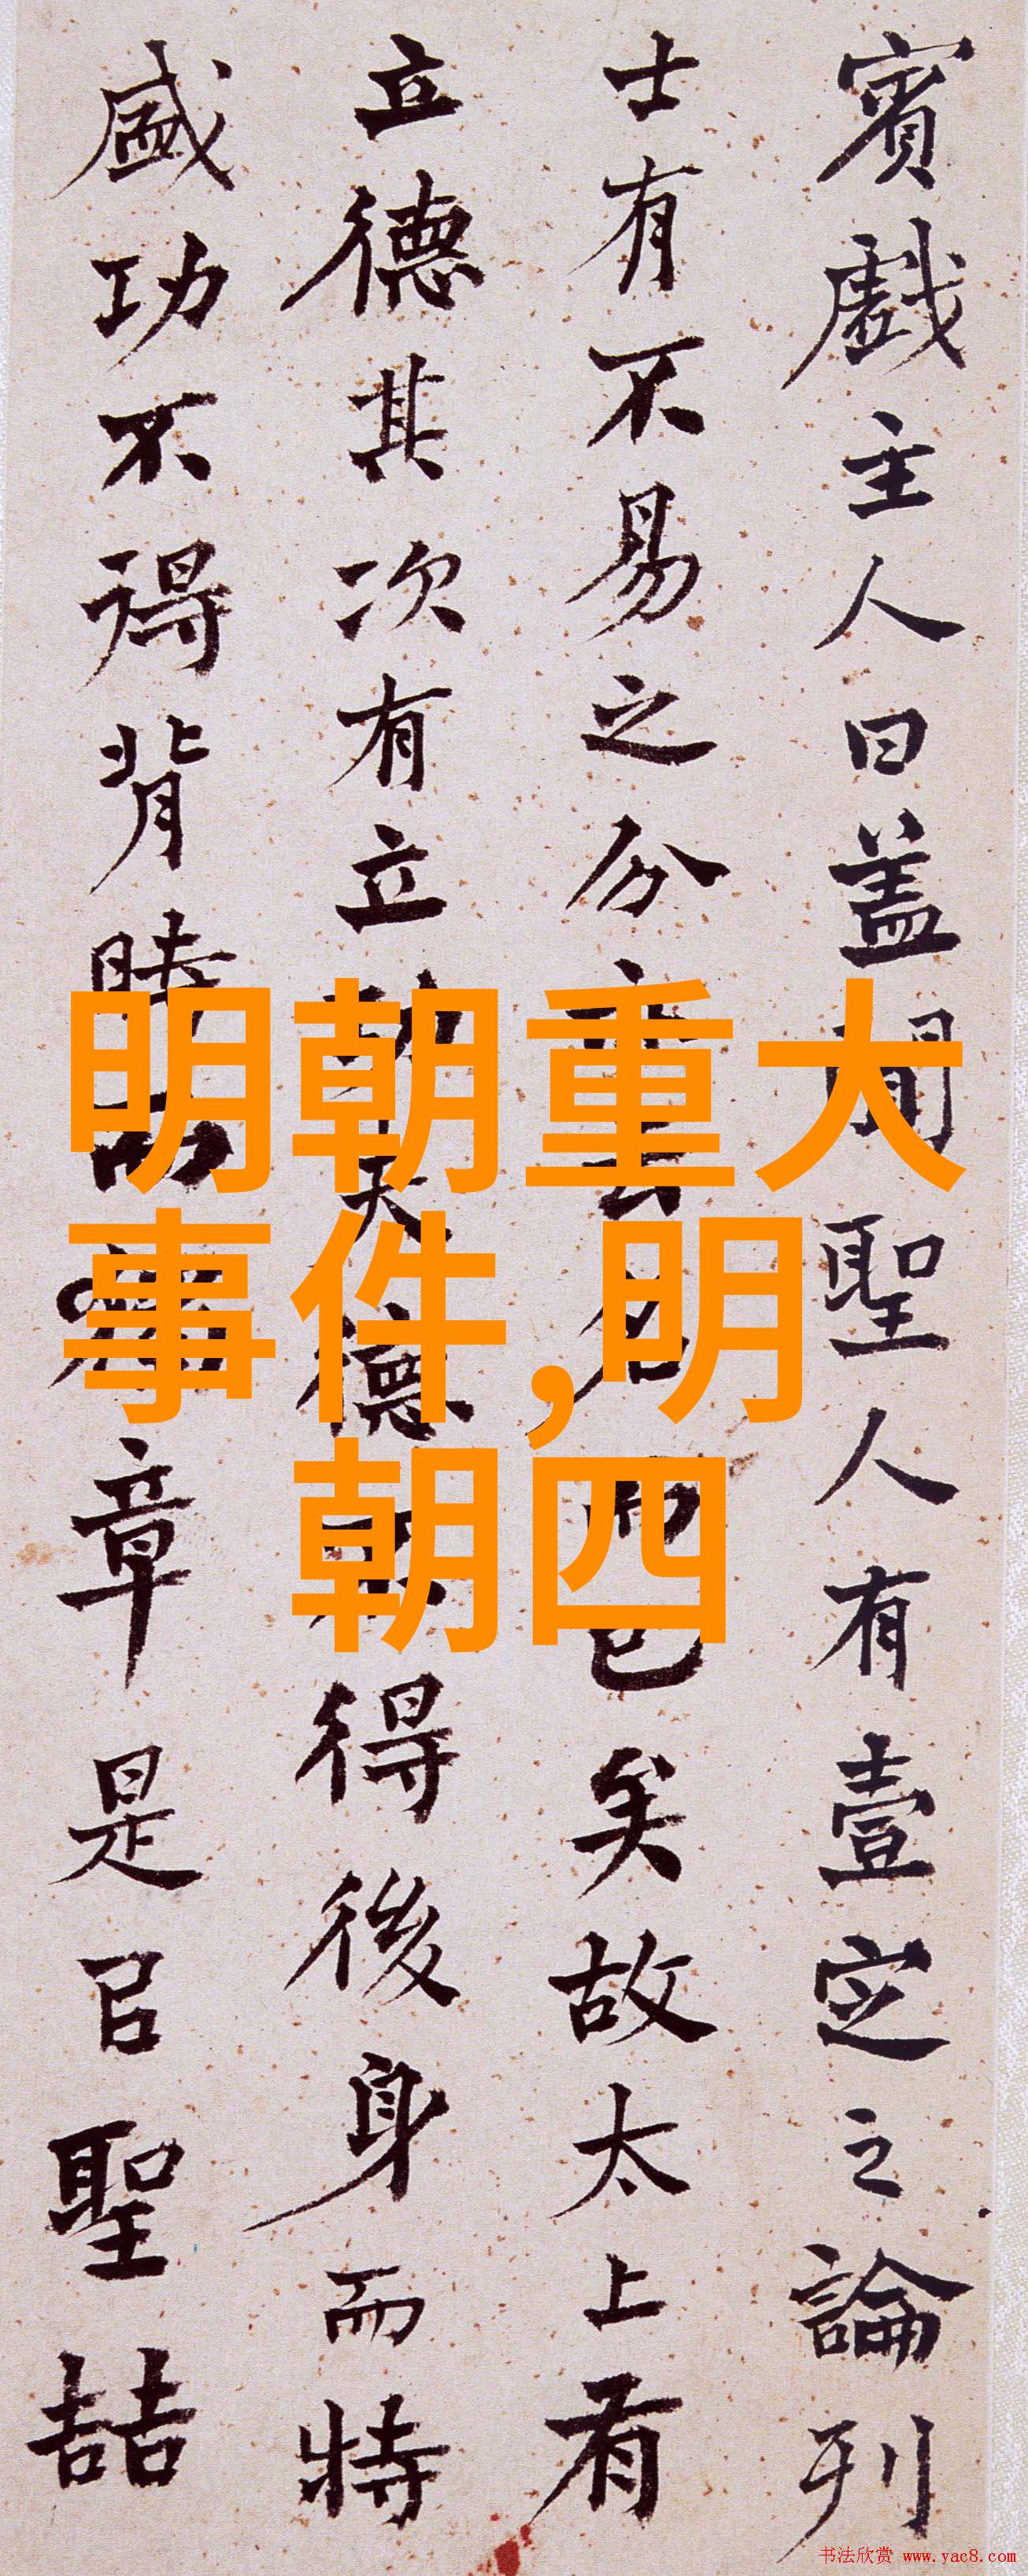 賓戲主人曰盖聞聖人有壹定之論列
士有不易之分亦云名而已矣故太上有
立德其次有立功夫德不得後身而特
盛功不得背時而獨章是㠯聖喆
明朝重大
事件,明
朝四
书法欣赏 www.yac8.com